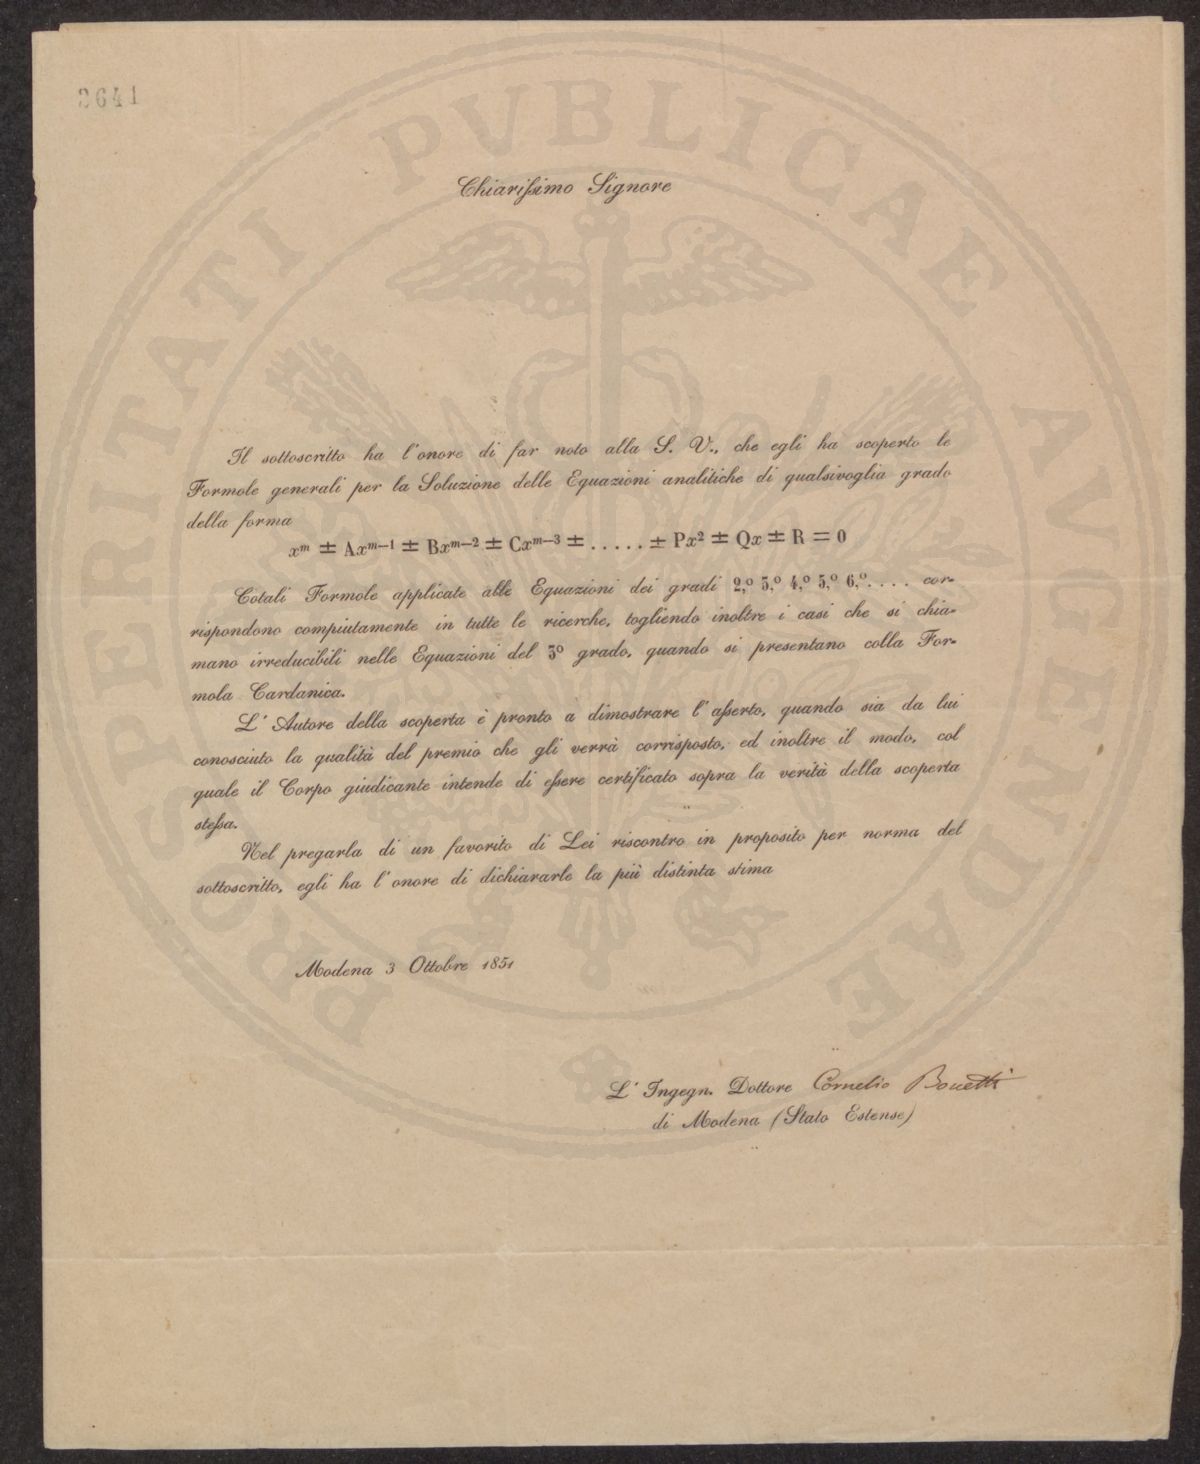 2641
PROSPERITATI PVBLICAE AVGENDAE
Chiarissimo Signore
Il sottoscritto ha l'onore di far noto alla S. V., che egli ha scoperto le
Formole generali per la Soluzione delle Equazioni analitiche di qualsivoglia grado
della forma
xᵐ ± Axᵐ⁻¹ ± Bxᵐ⁻² ± Cxᵐ⁻³ ± . . . . . ± Px² ± Qx ± R = 0
Cotali Formole applicate alle Equazioni dei gradi 2,º 3,º 4,º 5,º 6,º. . . . cor-
rispondono compiutamente in tutte le ricerche, togliendo inoltre i casi che si chia-
mano irreducibili nelle Equazioni del 3º grado, quando si presentano colla For-
mola Cardanica.
L'Autore della scoperta è pronto a dimostrare l'asserto, quando sia da lui
conosciuto la qualità del premio che gli verrà corrisposto, ed inoltre il modo, col
quale il Corpo giudicante intende di essere certificato sopra la verità della scoperta
stessa.
Nel pregarla di un favorito di Lei riscontro in proposito per norma del
sottoscritto, egli ha l'onore di dichiararle la più distinta stima
Modena 3 Ottobre 1851
L'Ingegn. Dottore Cornelio Bonetti
di Modena (Stato Estense)